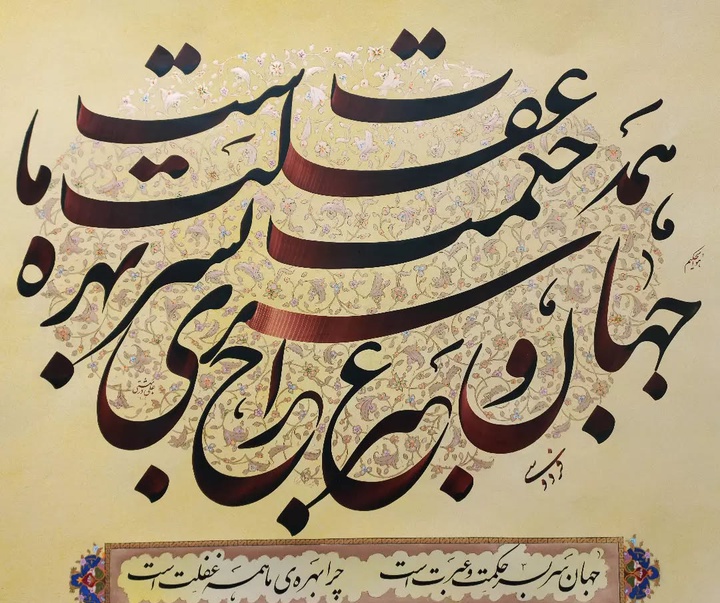 جهان سر بسر حکمت و عبرت است چرا بهره‌ی ما همه غفلت است
فردوسی
جهان سر بسر حکمت و عبرت است چرا بهره‌ی ما همه غفلت است